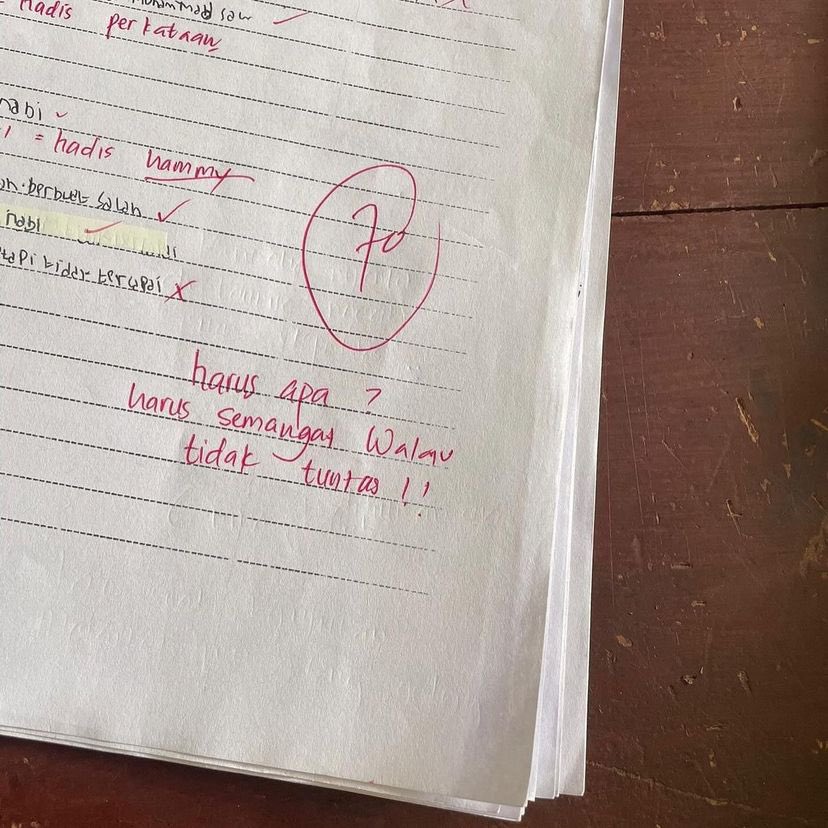 Muhammad saw
hadis perkataan
nabi
= hadis hammy
berbuat salah
nabi
tapi tidak tercapai
70
harus apa ?
harus semangat walau
tidak tuntas !!